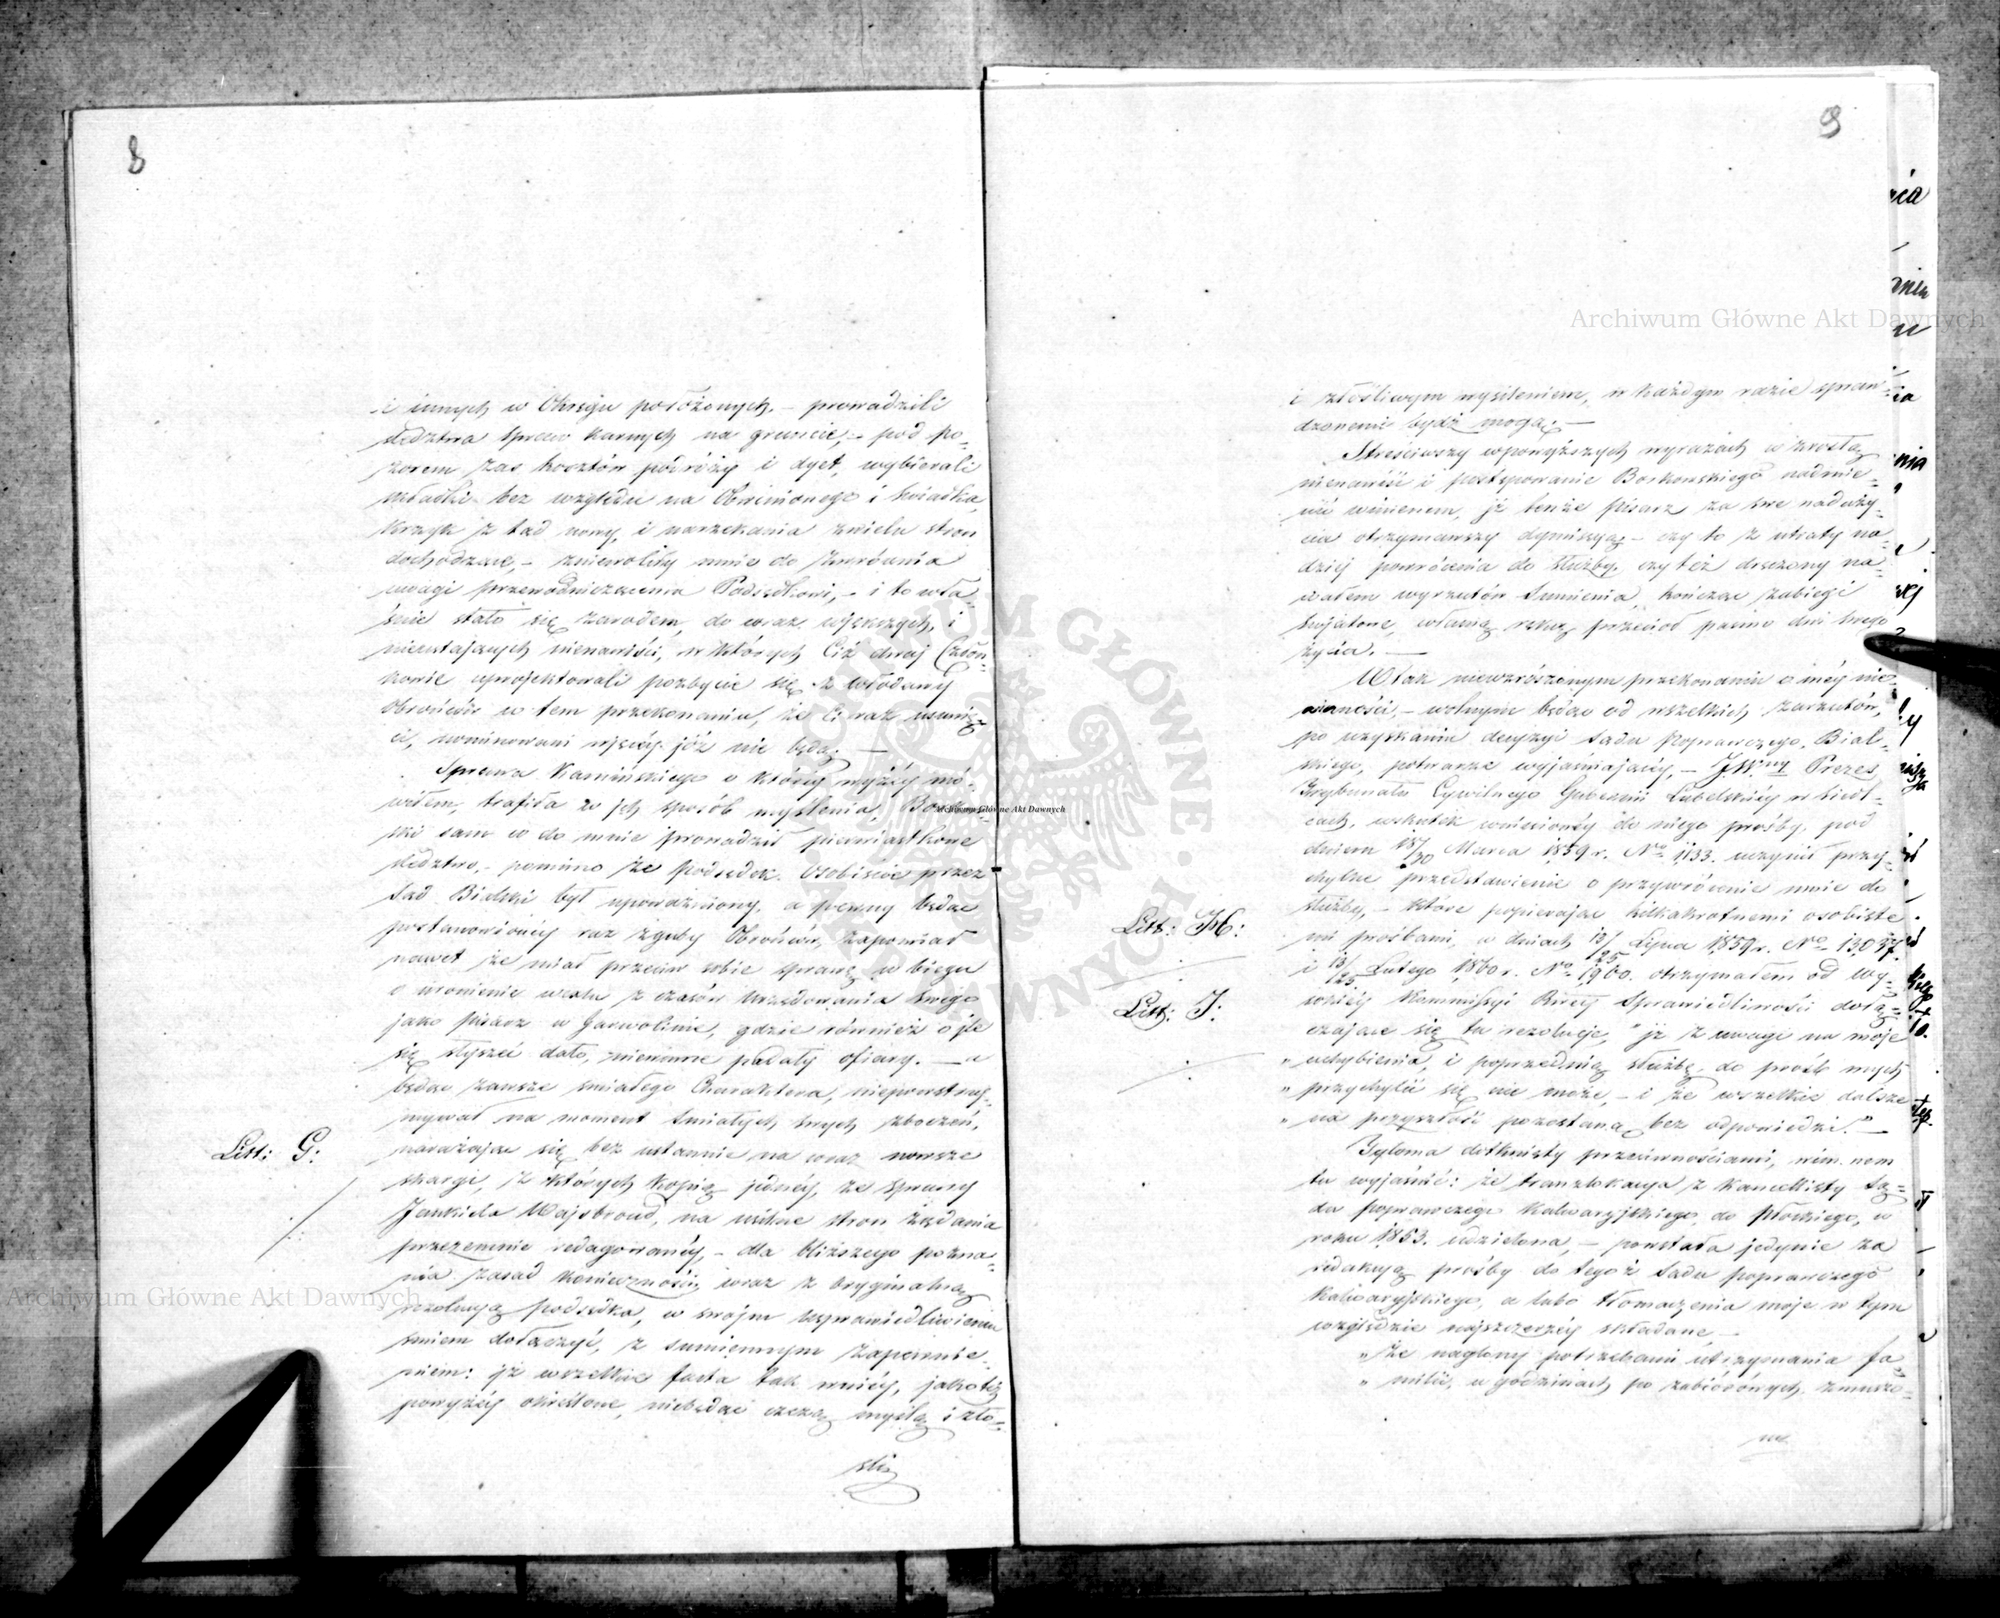 8
i innych w Okręgu położonych, – prowadzili
śledztwa spraw karnych na gruncie, – pod po=
zorem zaś kosztów podróży i dyet, wybierali
składki bez względu na Obwinionego i świadka,
krzyk z tąd nowy, i narzekania z wielu stron
dochodzące, – zniewoliły mnie do zwrócenia
uwagi przewodniczącemu Podsędkowi, – i to wła=
śnie stało się zarodem, do coraz większych, i
nieustających nienawiści, w których Ciż dwaj Człon=
kowie uprojektowali pozbycie się z Włodawy
Obrońców w tem przekonaniu, że Ci raz usunię=
ci, nominowani więcéj już nie będą. —
Sprawa Kamińskiego o któréj wyżéj mó=
wiłem, trafiła w ich sposób myślenia, Borkow=
ski sam w do mnie prowadził pierwiastkowe
śledztwo, – pomimo że Podsędek osobiście przez
Sąd Bialski był upoważniony, a pewny będąc
postanowionéj raz zguby Obrońców, zapomniał
nawet że miał przeciw sobie sprawę w biegu
o uronienie wexlu z czasów urzędowania swego
jako pisarz w Garwolinie, gdzie również o ile
się słyszeć dało, niewinne padały ofiary. — a
będąc zawsze śmiałego Charakteru, niepowstrzy=
mywał na moment śmiałych swych zboczeń,
narażając się bez ustannie na coraz nowsze
skargi, z których kopię jednéj, ze sprawy
Jankiela Wajsbroud, na usilne stron żądania
przezemnie redagowanéj, – dla bliższego pozna=
nia zasad konieczności, wraz z oryginalną
rezolucją podsędka, w swojem usprawiedliwieniu
śmiem dołączyć, z sumiennym zapewnie=
niem: iż wszelkie fakta tak wniéj, jakoteż
powyżéj określone, niebędąc czczą myślą i zło=
śliw
Litt: G:
9
i złośliwym myśleniem, w każdym razie spraw=
dzonemi bydź mogą. —
Streściwszy w powyższych wyrazach wzrosłą
nienawiść i postępowanie Borkowskiego nadmie=
nić winienem, iż tenże pisarz za swe naduży=
cia otrzymawszy dymissyą – czy to z utraty na=
dziej powrócenia do służby, czy też dręczony na=
wałem wyrzutów Sumienia, kończąc zabiegi
światowe, własną ręką przeciął pasmo dni swego
życia. —
W tak niewzruszonym przekonaniu o méj nie=
winności, – wolnym będąc od wszelkich zarzutów,
po uzyskaniu decyzyi Sądu Poprawczego Bial=
skiego, potwarze wyjaśniającéj, – JWny Prezes
Trybunału Cywilnego Gubernii Lubelskiéj w Siedl=
cach, wskutek wniesionéj do niego prośby, pod
dniem 18/30 Marca 1859 r. No 1133. uczynił przy=
chylne przedstawienie o przywrócenie mnie do
służby, – które popierając kilkakrotnemi osobiste
mi prośbami, w dniach 13/25 Lipca 1859 r. No 13037.
i 13/25 Lutego 1860 r. No 1960. otrzymałem od Wy=
sokiéj Kommissyi Rząd: Sprawiedliwości dołą=
czające się tu rezolucje, "iż z uwagi na moje
" uchybienia, i poprzednią służbę, do prośb mych
" przychylić się nie może, – i że wszelkie dalsze
" na przyszłość pozostaną bez odpowiedzi." —
Tyloma dotknięty przeciwnościami, winienem
tu wyjaśnić: że translokacya z Kancellisty Są=
du Poprawczego Kalwaryjskiego do Płockiego, w
roku 1853. udzielona, – powstała jedynie za
redakcyą prośby do tegoż Sądu poprawczego
Kalwaryjskiego, a lubo tłomaczenia moje w tym
względzie najszczerzéj składane, –
" że naglony potrzebami utrzymania fa=
" milii, w godzinach po zabiórowych, zmuszo=
ny
Litt: H:
Litt: J:
Archiwum Główne Akt Dawnych
Archiwum Główne Akt Dawnych
Archiwum Główne Akt Dawnych
ARCHIWUM GŁÓWNE AKT DAWNYCH